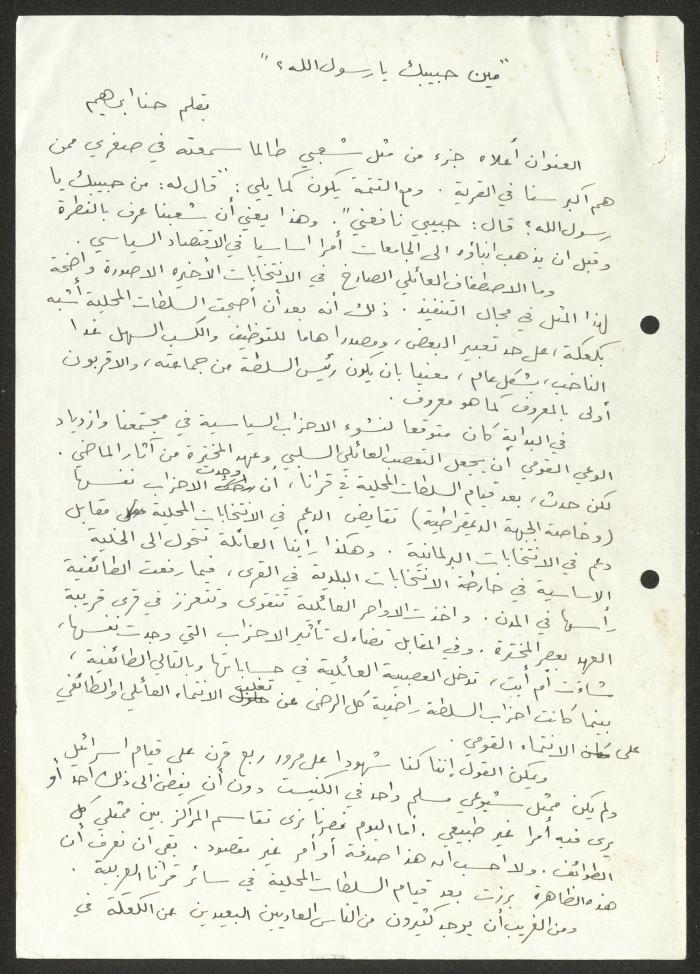 "مين حبيبك يا رسول الله؟"
بقلم حنا ابراهيم
العنوان أعلاه جزء من مثل شعبي طالما سمعته في صغري ممن
هم اكبر سنا في القرية. ومع التتمة يكون كما يلي: "قال له: من حبيبك يا
رسول الله؟ قال: حبيبي نافعني". وهذا يعني أن شعبنا عرف بالفطرة
وقبل ان يذهب ابناؤه الى الجامعات أمرا اساسيا في الاقتصاد السياسي.
وما الاصطفاف العائلي الصارخ في الانتخابات الأخيرة الا صورة واضحة
لهذا المثل في مجال التنفيذ. ذلك أنه بعد أن أصبحت السلطات المحلية أشبه
بكعكة، على حد تعبير البعض، ومصدرا هاما للتوظيف والكسب السهل غدا
الناخب، بشكل عام، معنيا بان يكون رئيس السلطة من جماعته، والاقربون
أولى بالمعروف كما هو معروف.
في البداية كان متوقعا لنشوء الاحزاب السياسية في مجتمعنا وازدياد
الوعي القومي أن يجعل التعصب العائلي السلبي وعهد المخترة من آثار الماضي.
لكن حدث، بعد قيام السلطات المحلية في قرانا، أن وجدت الاحزاب نفسها
(وخاصة الجبهة الديمقراطية) تقايض الدعم في الانتخابات المحلية مقابل
دعم في الانتخابات البرلمانية. وهكذا رأينا العائلة تتحول الى الخلية
الاساسية في خارطة الانتخابات البلدية في القرى، فيما رفعت الطائفية
رأسها في المدن. واخذت الاواصر العائلية تتقوى وتتعزز في قرى قريبة
العهد بعصر المخترة. وفي المقابل تضاءل تأثير الاحزاب التي وجدت نفسها،
شاءت أم أبت، تدخل العصبية العائلية في حساباتها وبالتالي الطائفية،
بينما كانت احزاب السلطة راضية كل الرضى عن تغليب الانتماء العائلي او الطائفي
على الانتماء القومي.
ويمكن القول إننا كنا شهودا على مرور ربع قرن على قيام اسرائيل
ولم يكن ممثل شيوعي مسلم واحد في الكنيست دون أن يفطن الى ذلك احد أو
يرى فيه أمرا غير طبيعي. أما اليوم فصرنا نرى تقاسم المراكز بين ممثلي كل
الطوائف. ولا احسب انه هذا صدفة أو أمر غير مقصود. بقي ان نعرف أن
هذه الظاهرة برزت بعد قيام السلطات المحلية في سائر قرانا العربية.
ومن الغريب أن يوجد كثيرون من الناس العاديين البعيدين عن الكعكة في